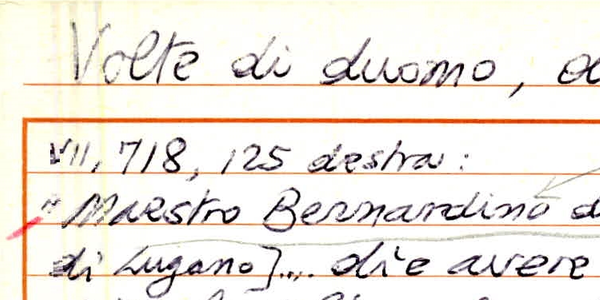 Volte di duomo,
VII, 718, 125 destra:
"Maestro Bernardino d
di Lugano].... die avere